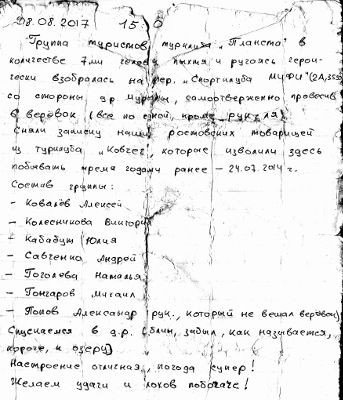 08.08.2017 15:0
Группа туристов турклуба „Планета" в
количестве 7ми голов, пыхтя и ругаясь герои-
чески взобралась на пер. „Спортклуба МИФИ" (2А,
со стороны др. самоотверженно провесив
6 верёвок (все по одной, кроме рук-ля)
Сняли записку наших ростовских товарищей
из турклуба „Ковчег", которые изволили здесь
побывать тремя годами ранее – 24.07.2014г.
Состав группы:
– Ковалёв Алексей
– Колесникова Виктория
– Кабабуш Юлия
– Савченко Андрей
– Гоголева Наталья
– Гончаров Михаил
– Попов Александр (рук., который не вешал верёвок)
Спускаемся в д.р. (блин, забыл, как называется,
короче, к озеру)
Настроение отличная, погода супер!
Желаем удачи и лохов побогаче!